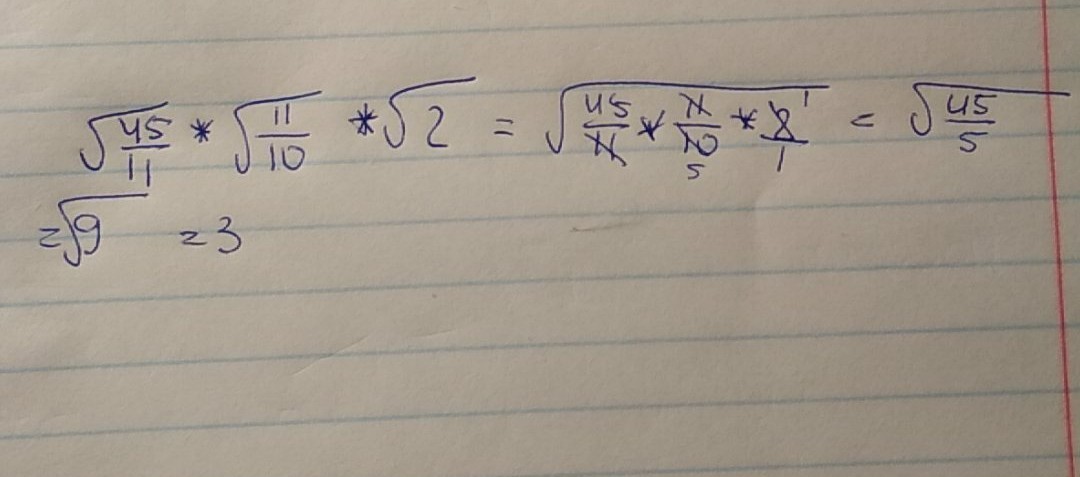 √45/11 * √11/10 * √2 = √45/11 * 11/10 5 * 2 1/1 = √45/5
= √9 = 3